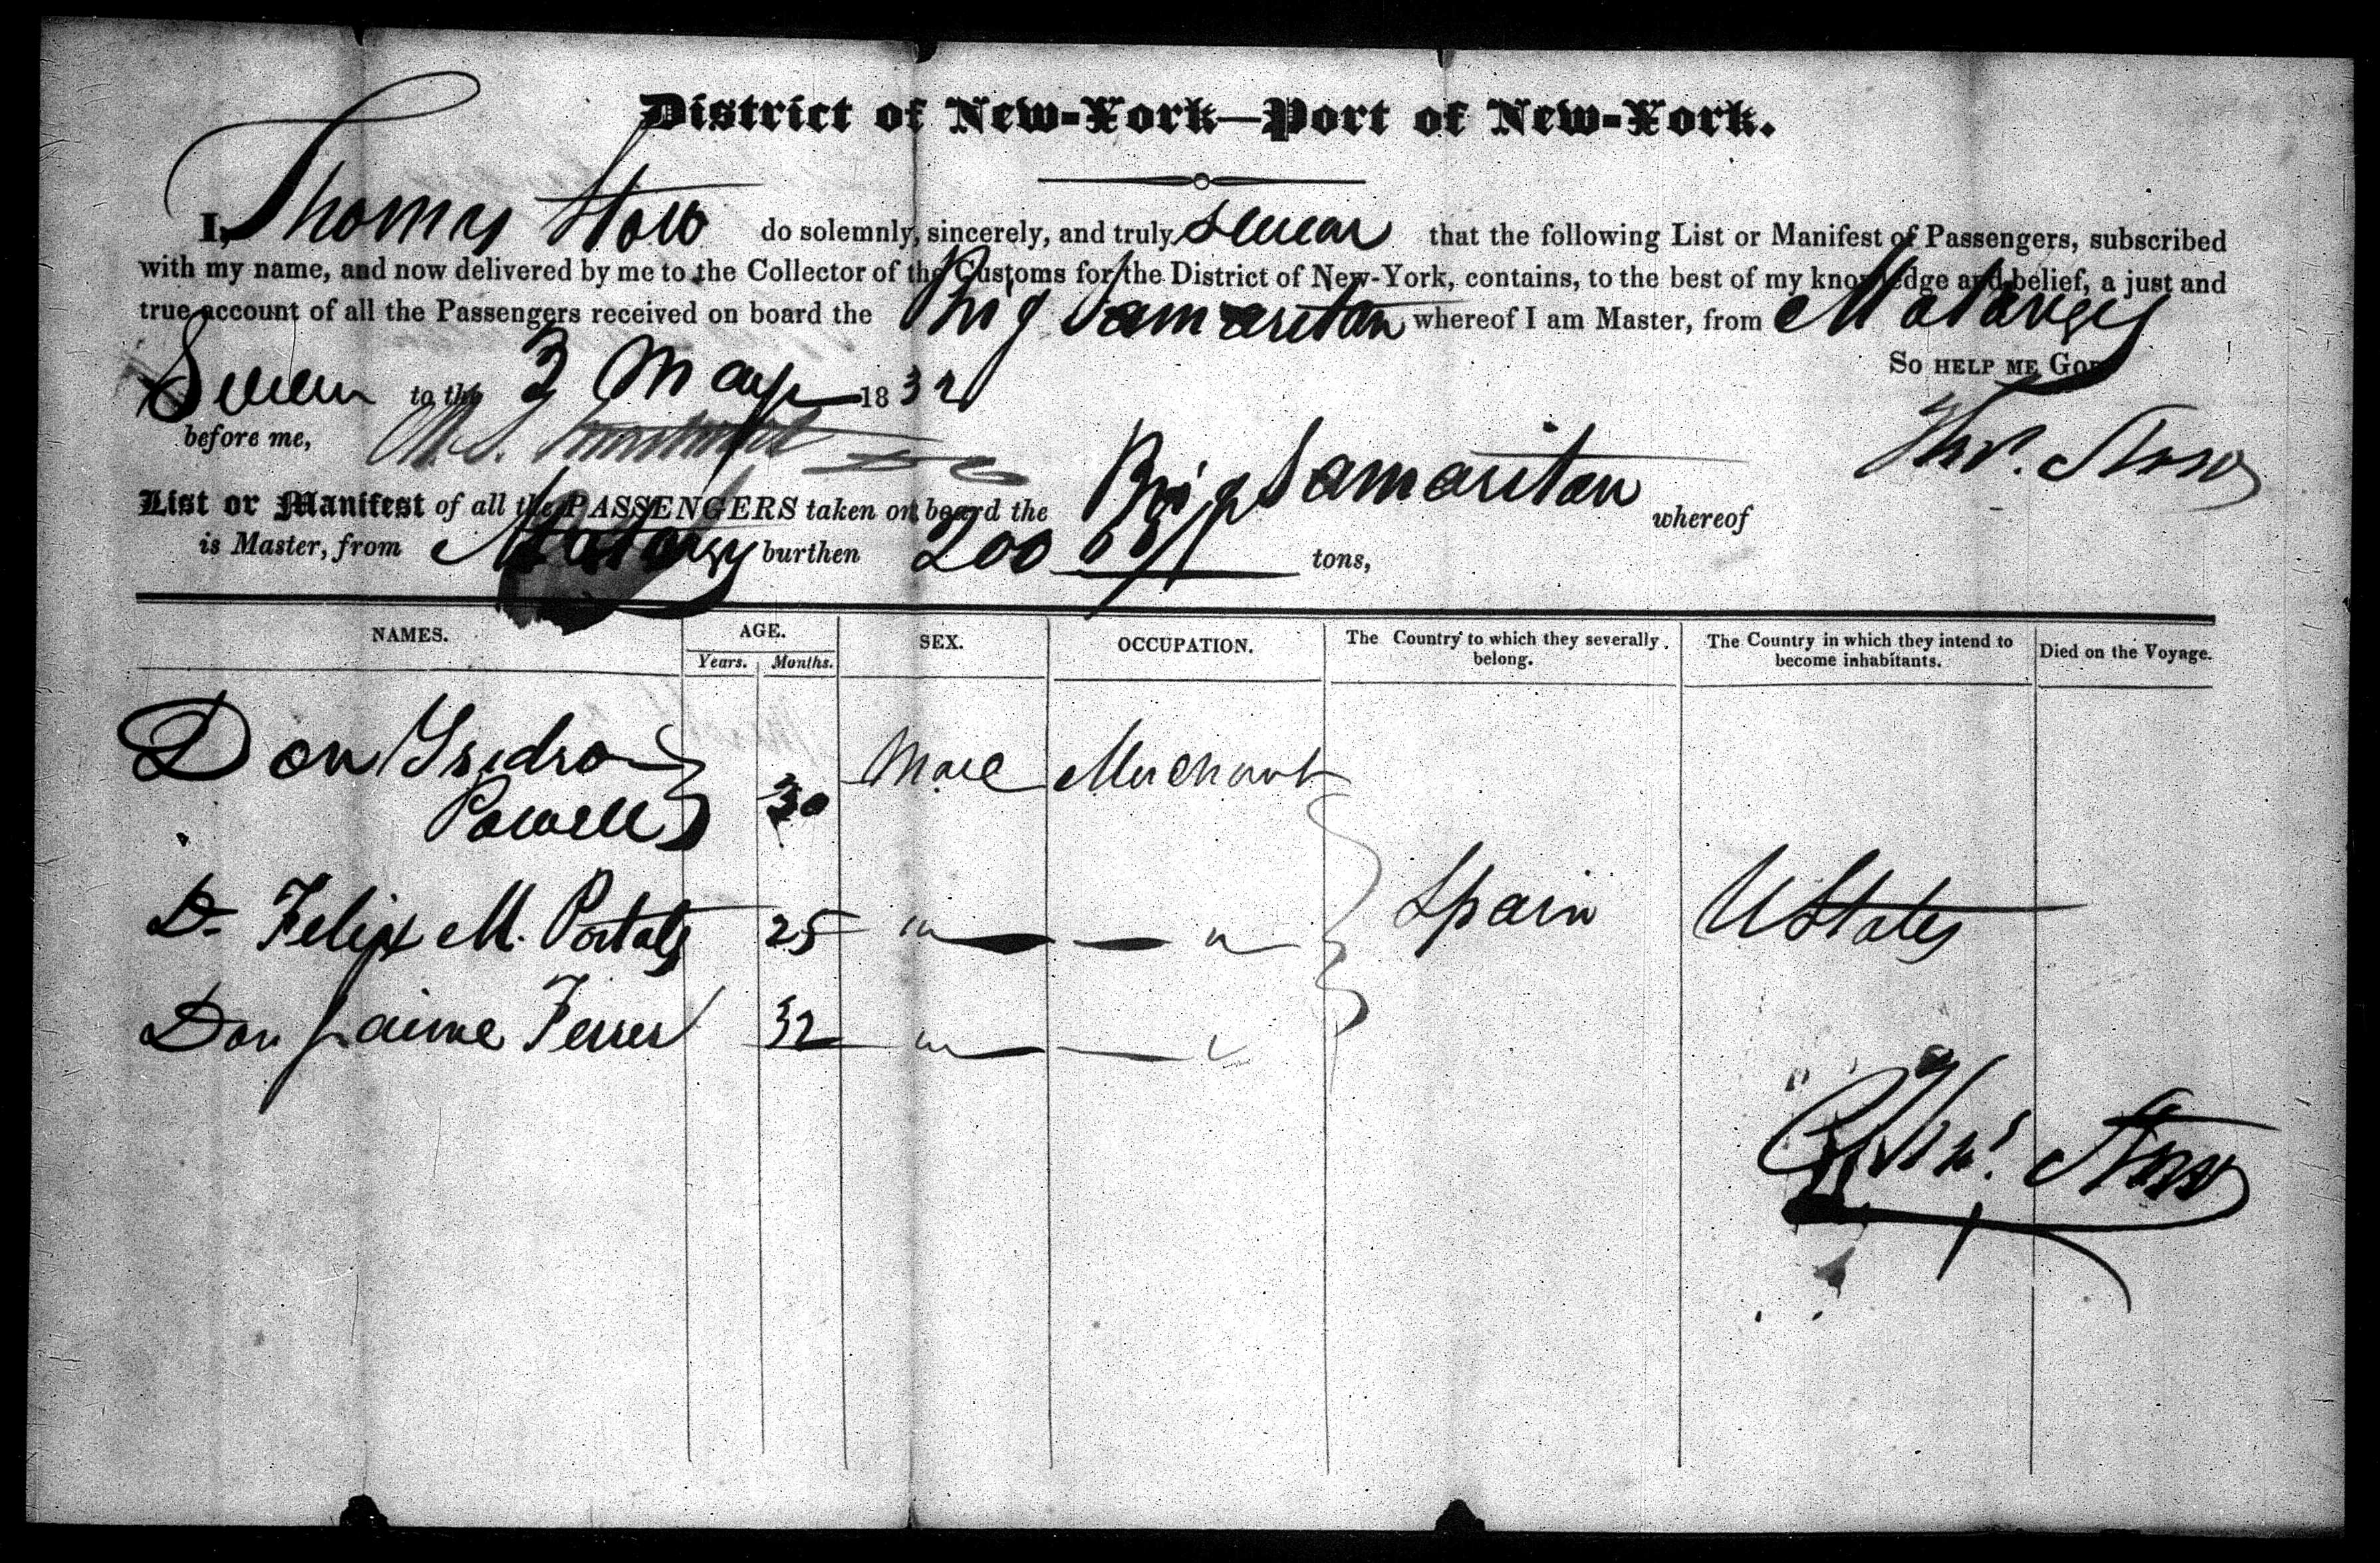 District of New-York—Port of New-York.
I, Thomas Stow do solemnly, sincerely, and truly swear that the following List or Manifest of Passengers, subscribed
with my name, and now delivered by me to the Collector of the Customs for the District of New-York, contains, to the best of my knowledge and belief, a just and
true account of all the Passengers received on board the Brig Samaritan whereof I am Master, from Matanzas
So HELP ME GOD.
to the 3 May 1832
before me,
Thos. Stow
List or Manifest of all the PASSENGERS taken on board the Brig Samaritan whereof
is Master, from Matanzas burthen 200 tons,
NAMES. AGE. SEX. OCCUPATION. The Country to which they severally belong. The Country in which they intend to become inhabitants. Died on the Voyage.
Years. Months.
Don Ysidro
Powell 30 Male Merchant
D— Felix M. Portals 25 " — — " Spain UStates
Don Jaime Ferrer 32 " — — "
Thos. Stow